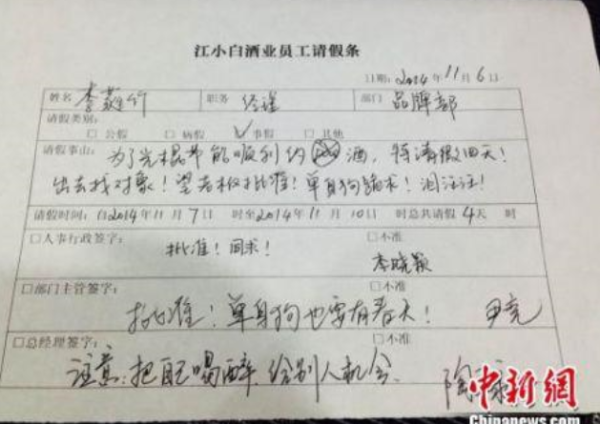 江小白酒业员工请假条
日期: 2014年11月6日
姓名 李 竹 职务 经理 部门 品牌部
请假类别:
□ 公假 □ 病假 ✓ 事假 □ 其他
请假事由: 为了光棍节能顺利约 酒, 特请假四天!
出去找对象! 望老板批准! 单身狗跪求! 泪汪汪!
请假时间: 自2014年11月7日 时至2014年11月10日 时总共请假4天 时
□人事行政签字: □不准
批准! 同求! 李晓颖
□部门主管签字: □不准
批准! 单身狗也要有春天! 尹亮
□总经理签字: □不准
注意: 把自己喝醉, 给别人机会. 陶
中新网
Chinanews.com